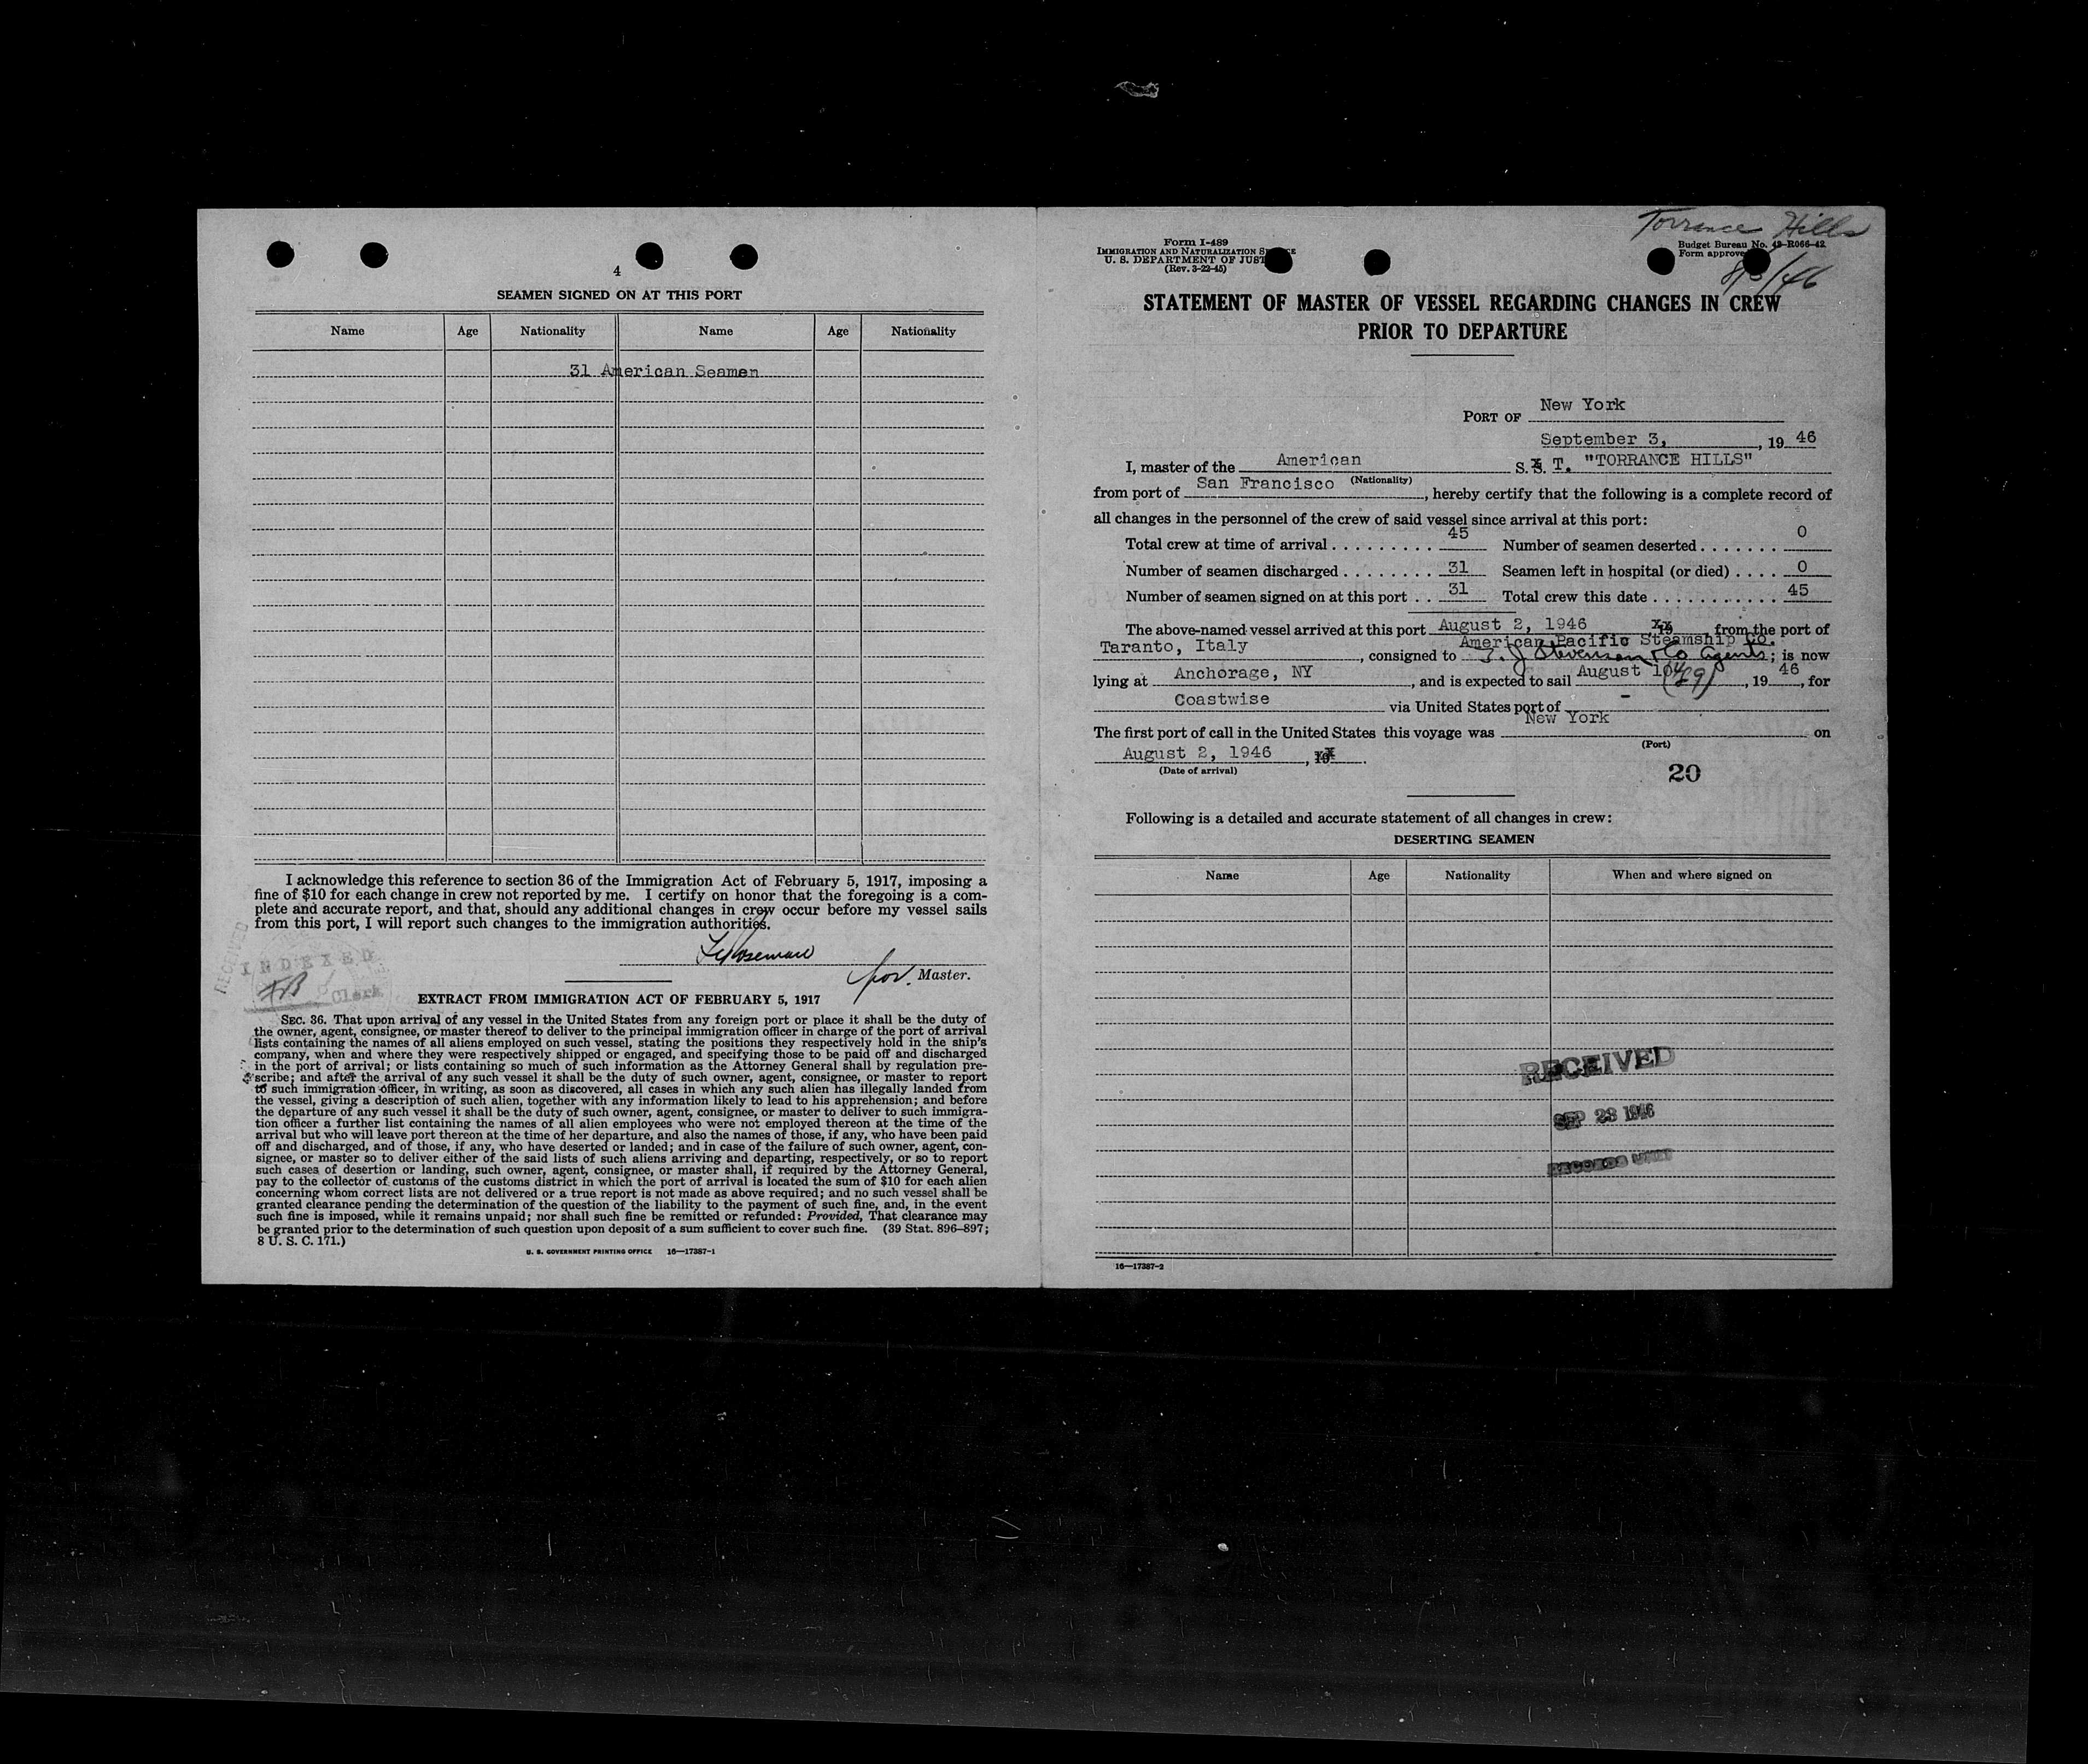 4
SEAMEN SIGNED ON AT THIS PORT
Name Age Nationality Name Age Nationality
31 American Seamen
I acknowledge this reference to section 36 of the Immigration Act of February 5, 1917, imposing a
fine of $10 for each change in crew not reported by me. I certify on honor that the foregoing is a com-
plete and accurate report, and that, should any additional changes in crew occur before my vessel sails
from this port, I will report such changes to the immigration authorities.
RECEIVED
INDEXED
Clerk
for. Master.
EXTRACT FROM IMMIGRATION ACT OF FEBRUARY 5, 1917
SEC. 36. That upon arrival of any vessel in the United States from any foreign port or place it shall be the duty of
the owner, agent, consignee, or master thereof to deliver to the principal immigration officer in charge of the port of arrival
lists containing the names of all aliens employed on such vessel, stating the positions they respectively hold in the ship's
company, when and where they were respectively shipped or engaged, and specifying those to be paid off and discharged
in the port of arrival; or lists containing so much of such information as the Attorney General shall by regulation pre-
scribe; and after the arrival of any such vessel it shall be the duty of such owner, agent, consignee, or master to report
to such immigration officer, in writing, as soon as discovered, all cases in which any such alien has illegally landed from
the vessel, giving a description of such alien, together with any information likely to lead to his apprehension; and before
the departure of any such vessel it shall be the duty of such owner, agent, consignee, or master to deliver to such immigra-
tion officer a further list containing the names of all alien employees who were not employed thereon at the time of the
arrival but who will leave port thereon at the time of her departure, and also the names of those, if any, who have been paid
off and discharged, and of those, if any, who have deserted or landed; and in case of the failure of such owner, agent, con-
signee, or master so to deliver either of the said lists of such aliens arriving and departing, respectively, or so to report
such cases of desertion or landing, such owner, agent, consignee, or master shall, if required by the Attorney General,
pay to the collector of customs of the customs district in which the port of arrival is located the sum of $10 for each alien
concerning whom correct lists are not delivered or a true report is not made as above required; and no such vessel shall be
granted clearance pending the determination of the question of the liability to the payment of such fine, and, in the event
such fine is imposed, while it remains unpaid; nor shall such fine be remitted or refunded: Provided, That clearance may
be granted prior to the determination of such question upon deposit of a sum sufficient to cover such fine. (39 Stat. 896–897;
8 U. S. C. 171.)
U. S. GOVERNMENT PRINTING OFFICE 16—17387-1
Torrance Hills
Form I-489
IMMIGRATION AND NATURALIZATION
U. S. DEPARTMENT OF JUST
(Rev. 3-22-45)
Budget Bureau No. 43-R066-42.
Form approve
STATEMENT OF MASTER OF VESSEL REGARDING CHANGES IN CREW
PRIOR TO DEPARTURE
PORT OF New York
September 3, , 19 46
I, master of the American S. S. T. "TORRANCE HILLS"
(Nationality)
from port of San Francisco , hereby certify that the following is a complete record of
all changes in the personnel of the crew of said vessel since arrival at this port:
Total crew at time of arrival . . . . . . . . . 45 Number of seamen deserted . . . . . . . 0
Number of seamen discharged . . . . . . . . 31 Seamen left in hospital (or died) . . . . 0
Number of seamen signed on at this port . . 31 Total crew this date . . . . . . . . . . . 45
The above-named vessel arrived at this port August 2, 1946 19 from the port of
American Pacific Steamship Co.
Taranto, Italy , consigned to T. J Stevenson & Co Agents; is now
lying at Anchorage, NY , and is expected to sail August 10 , 19 46 , for
Coastwise via United States port of -
The first port of call in the United States this voyage was New York on
(Port)
August 2, 1946 , 19 .
(Date of arrival)
20
Following is a detailed and accurate statement of all changes in crew:
DESERTING SEAMEN
Name Age Nationality When and where signed on
RECEIVED
SEP 23 1946
RECORDS UNIT
16—17387-2